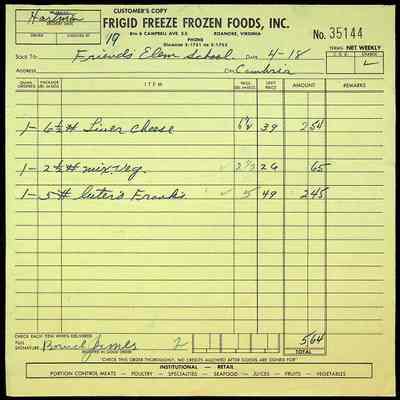 CUSTOMER'S COPY
Hartman
DRIVER
CHECKED BY
19
FRIGID FREEZE FROZEN FOODS, INC.
8TH & CAMPBELL AVE. S.E. ROANOKE, VIRGINIA
PHONE
DIAMOND 2-1751 OR 2-1752
No. 35144
TERMS: NET WEEKLY
C.O.D. CHARGE
SOLD TO Friends Elem School DATE 4-18
ADDRESS Cambria
QUAN. ORDERED PACKAGE LBS. OR EACH ITEM UNIT PRICE AMOUNT REMARKS
1- 6½# Liver cheese 6½ 39 254
1- 2½# mix veg. 2½ 26 65
1- 5# Franks 5 49 245
CHECK EACH ITEM WHEN DELIVERED
FULL SIGNATURE James 2 564
RECEIVED IN GOOD ORDER TOTAL
CHECK THIS ORDER THOROUGHLY, NO CREDITS ALLOWED AFTER GOODS ARE SIGNED FOR
INSTITUTIONAL — RETAIL
PORTION CONTROL MEATS — POULTRY — SPECIALTIES — SEAFOOD — JUICES — FRUITS — VEGETABLES